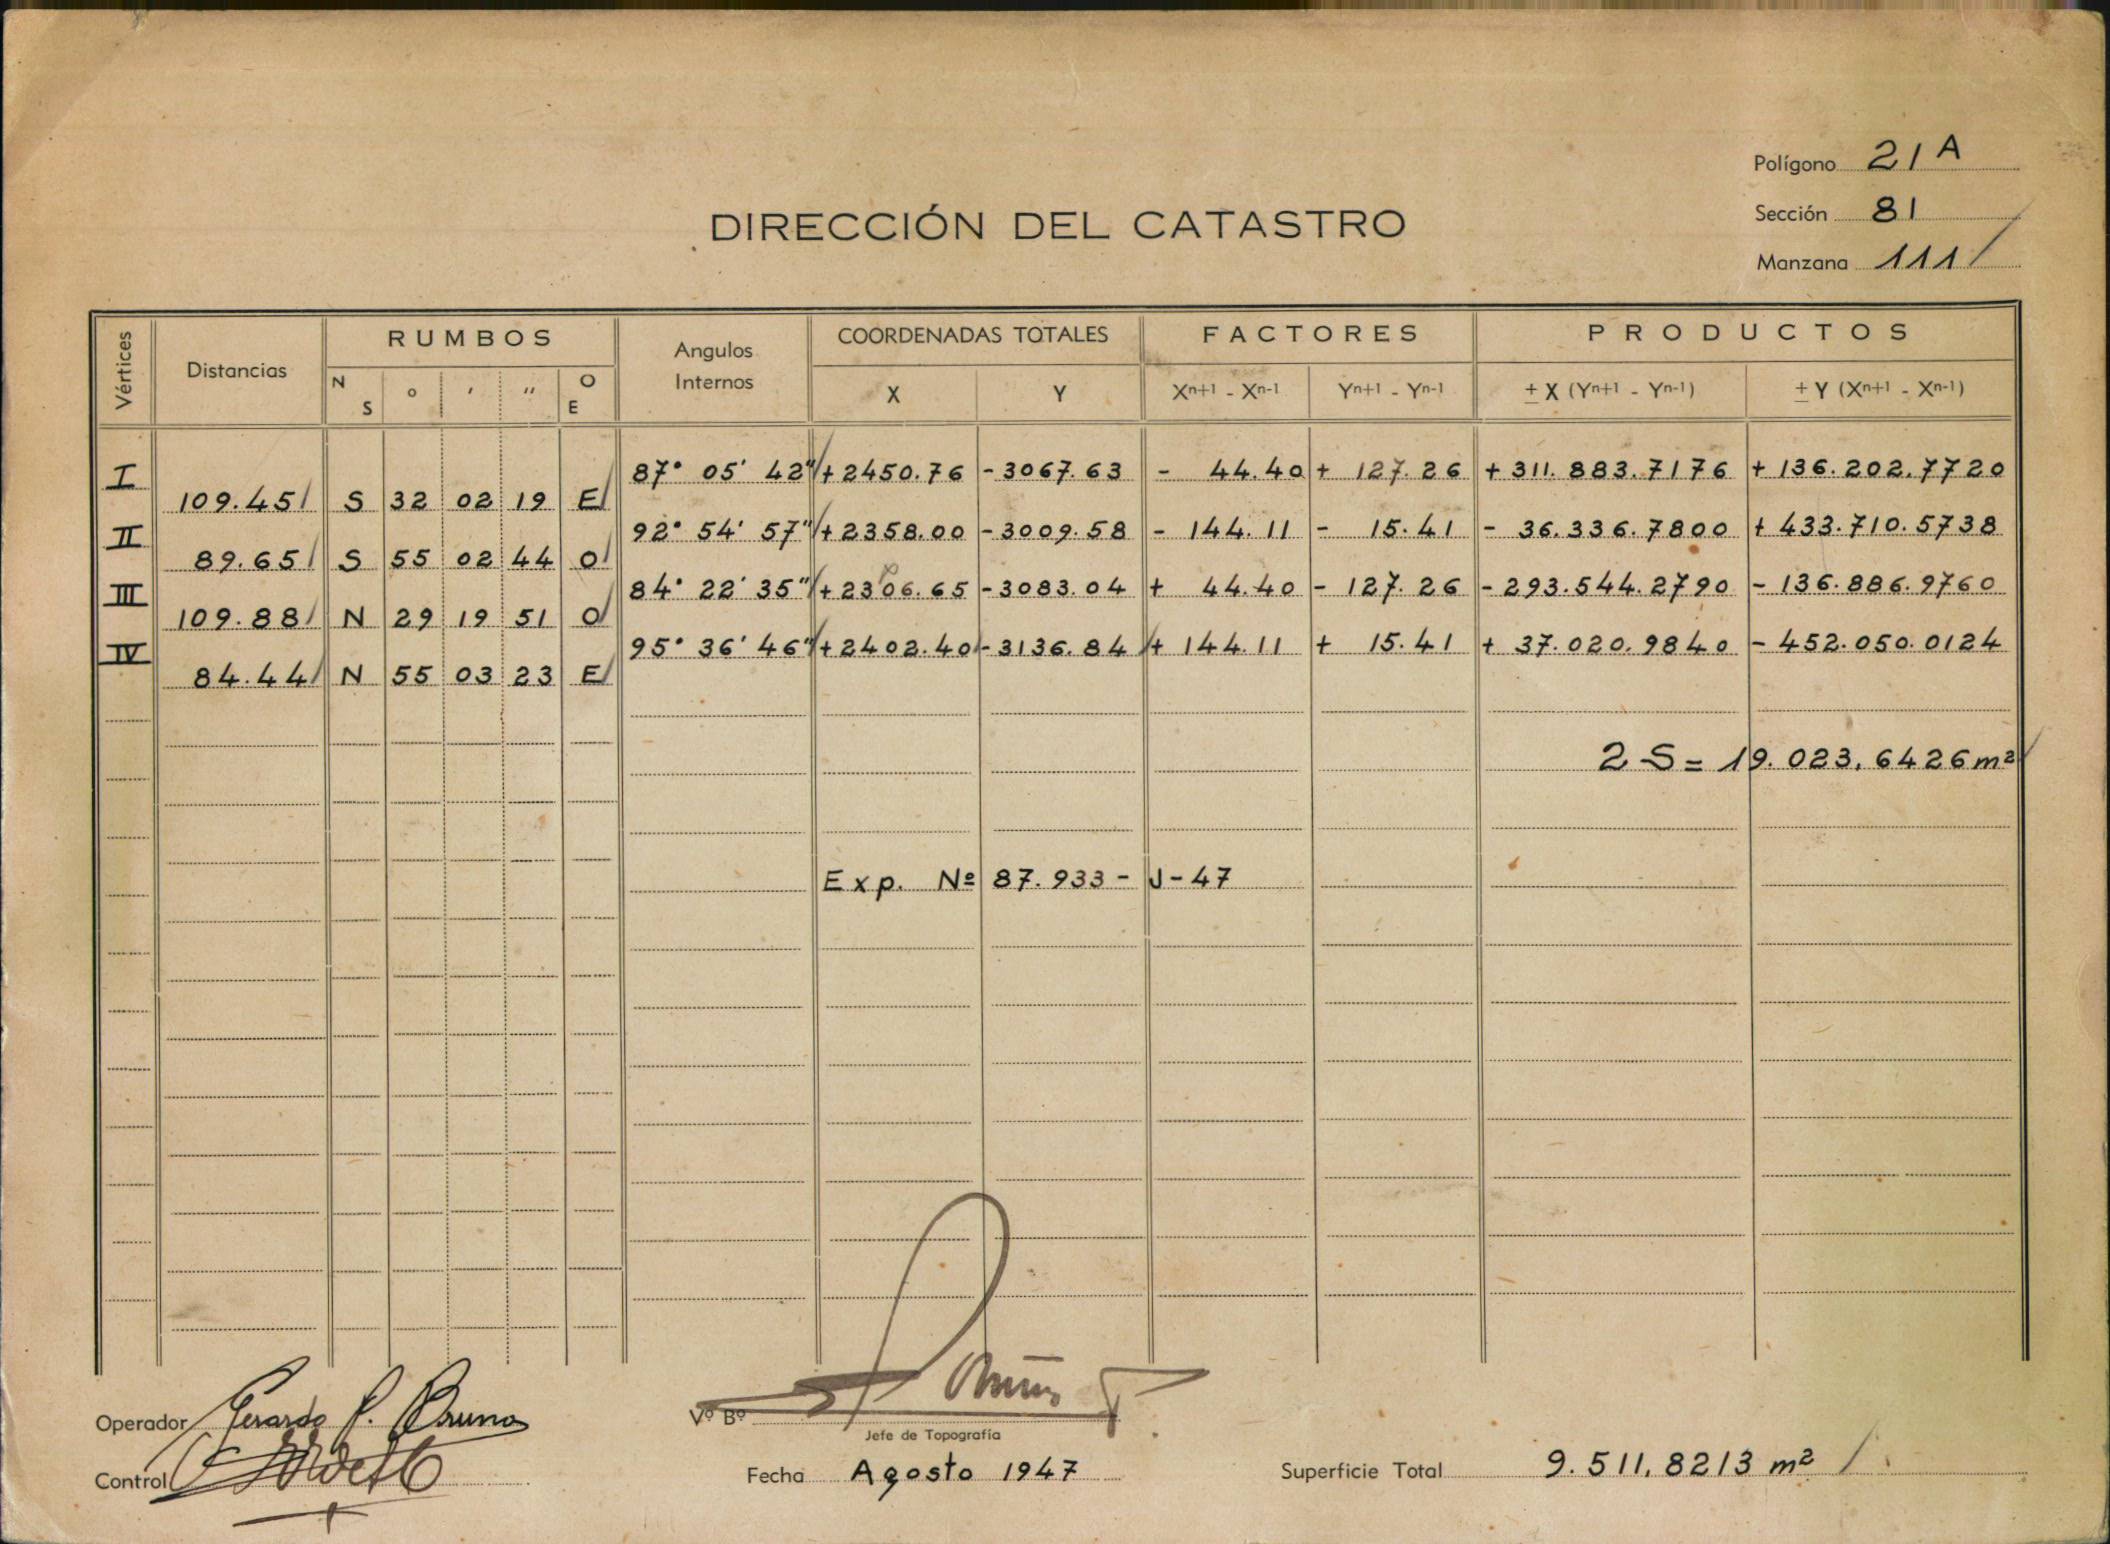 Polígono 21 A
Sección 81
DIRECCIÓN DEL CATASTRO
Manzana 111
Vértices Distancias RUMBOS Angulos Internos COORDENADAS TOTALES FACTORES PRODUCTOS
N S ° ' " O E X Y Xn+1 - Xn-1 Yn+1 - Yn-1 ± X (Yn+1 - Yn-1) ± Y (Xn+1 - Xn-1)
I 87° 05' 42" + 2450.76 - 3067.63 - 44.40 + 127.26 + 311.883.7176 + 136.202.7720
109.45 S 32 02 19 E
II 92° 54' 57" + 2358.00 - 3009.58 - 144.11 - 15.41 - 36.336.7800 + 433.710.5738
89.65 S 55 02 44 O
III 84° 22' 35" + 2306.65 - 3083.04 + 44.40 - 127.26 - 293.544.2790 - 136.886.9760
109.88 N 29 19 51 O
IV 95° 36' 46" + 2402.40 - 3136.84 + 144.11 + 15.41 + 37.020.9840 - 452.050.0124
84.44 N 55 03 23 E
2 S = 19.023,6426 m²
Exp. Nº 87.933 - J - 47
Operador Gerardo P. Bruno
Vº Bº
Jefe de Topografía
Control
Fecha Agosto 1947
Superficie Total 9.511,8213 m²